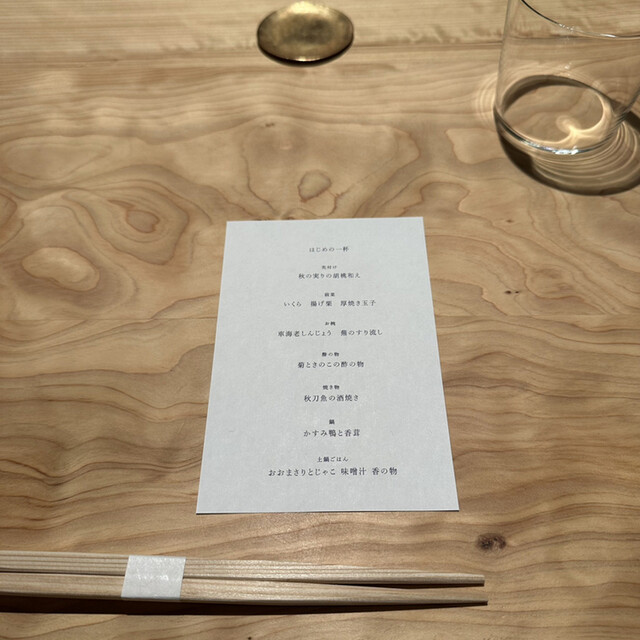 はじめの一杯
先付け
秋の実りの胡桃和え
前菜
いくら 揚げ葉 厚焼き玉子
お椀
車海老しんじょう 蕪のすり流し
酢の物
菊ときのこの酢の物
焼き物
秋刀魚の酒焼き
鍋
かすみ鴨と香茸
土鍋ごはん
おおまさりとじゃこ 味噌汁 香の物